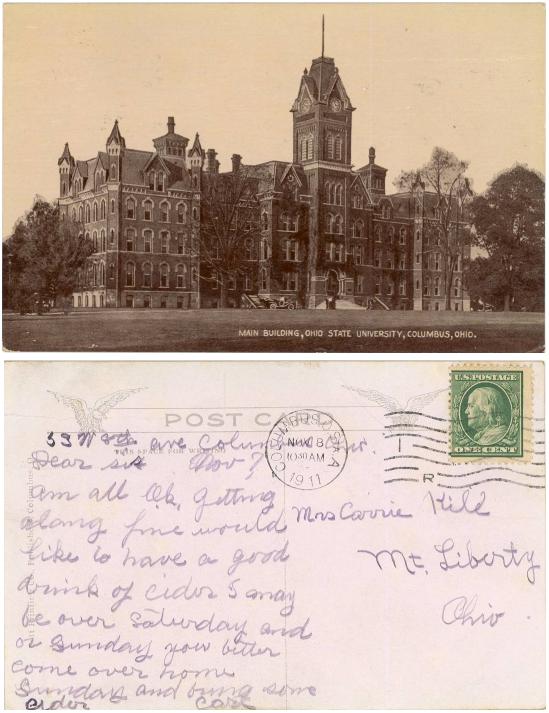 MAIN BUILDING, OHIO STATE UNIVERSITY, COLUMBUS, OHIO.
POST CARD
THIS SPACE FOR WRITING
COLUMBUS, O.
STA. A
NOV 8
1030 AM
1911
1
R
U.S. POSTAGE
ONE CENT
53 W 8th ave Columbus
Dear sis Nov 7
I am all Ok. Getting
along fine would
like to have a good
drink of cider I may
be over Saturday and
or Sunday you better
come over home
Sunday and bring some
cider Carl
Mrs Carrie Kile
Mt. Liberty
Ohio